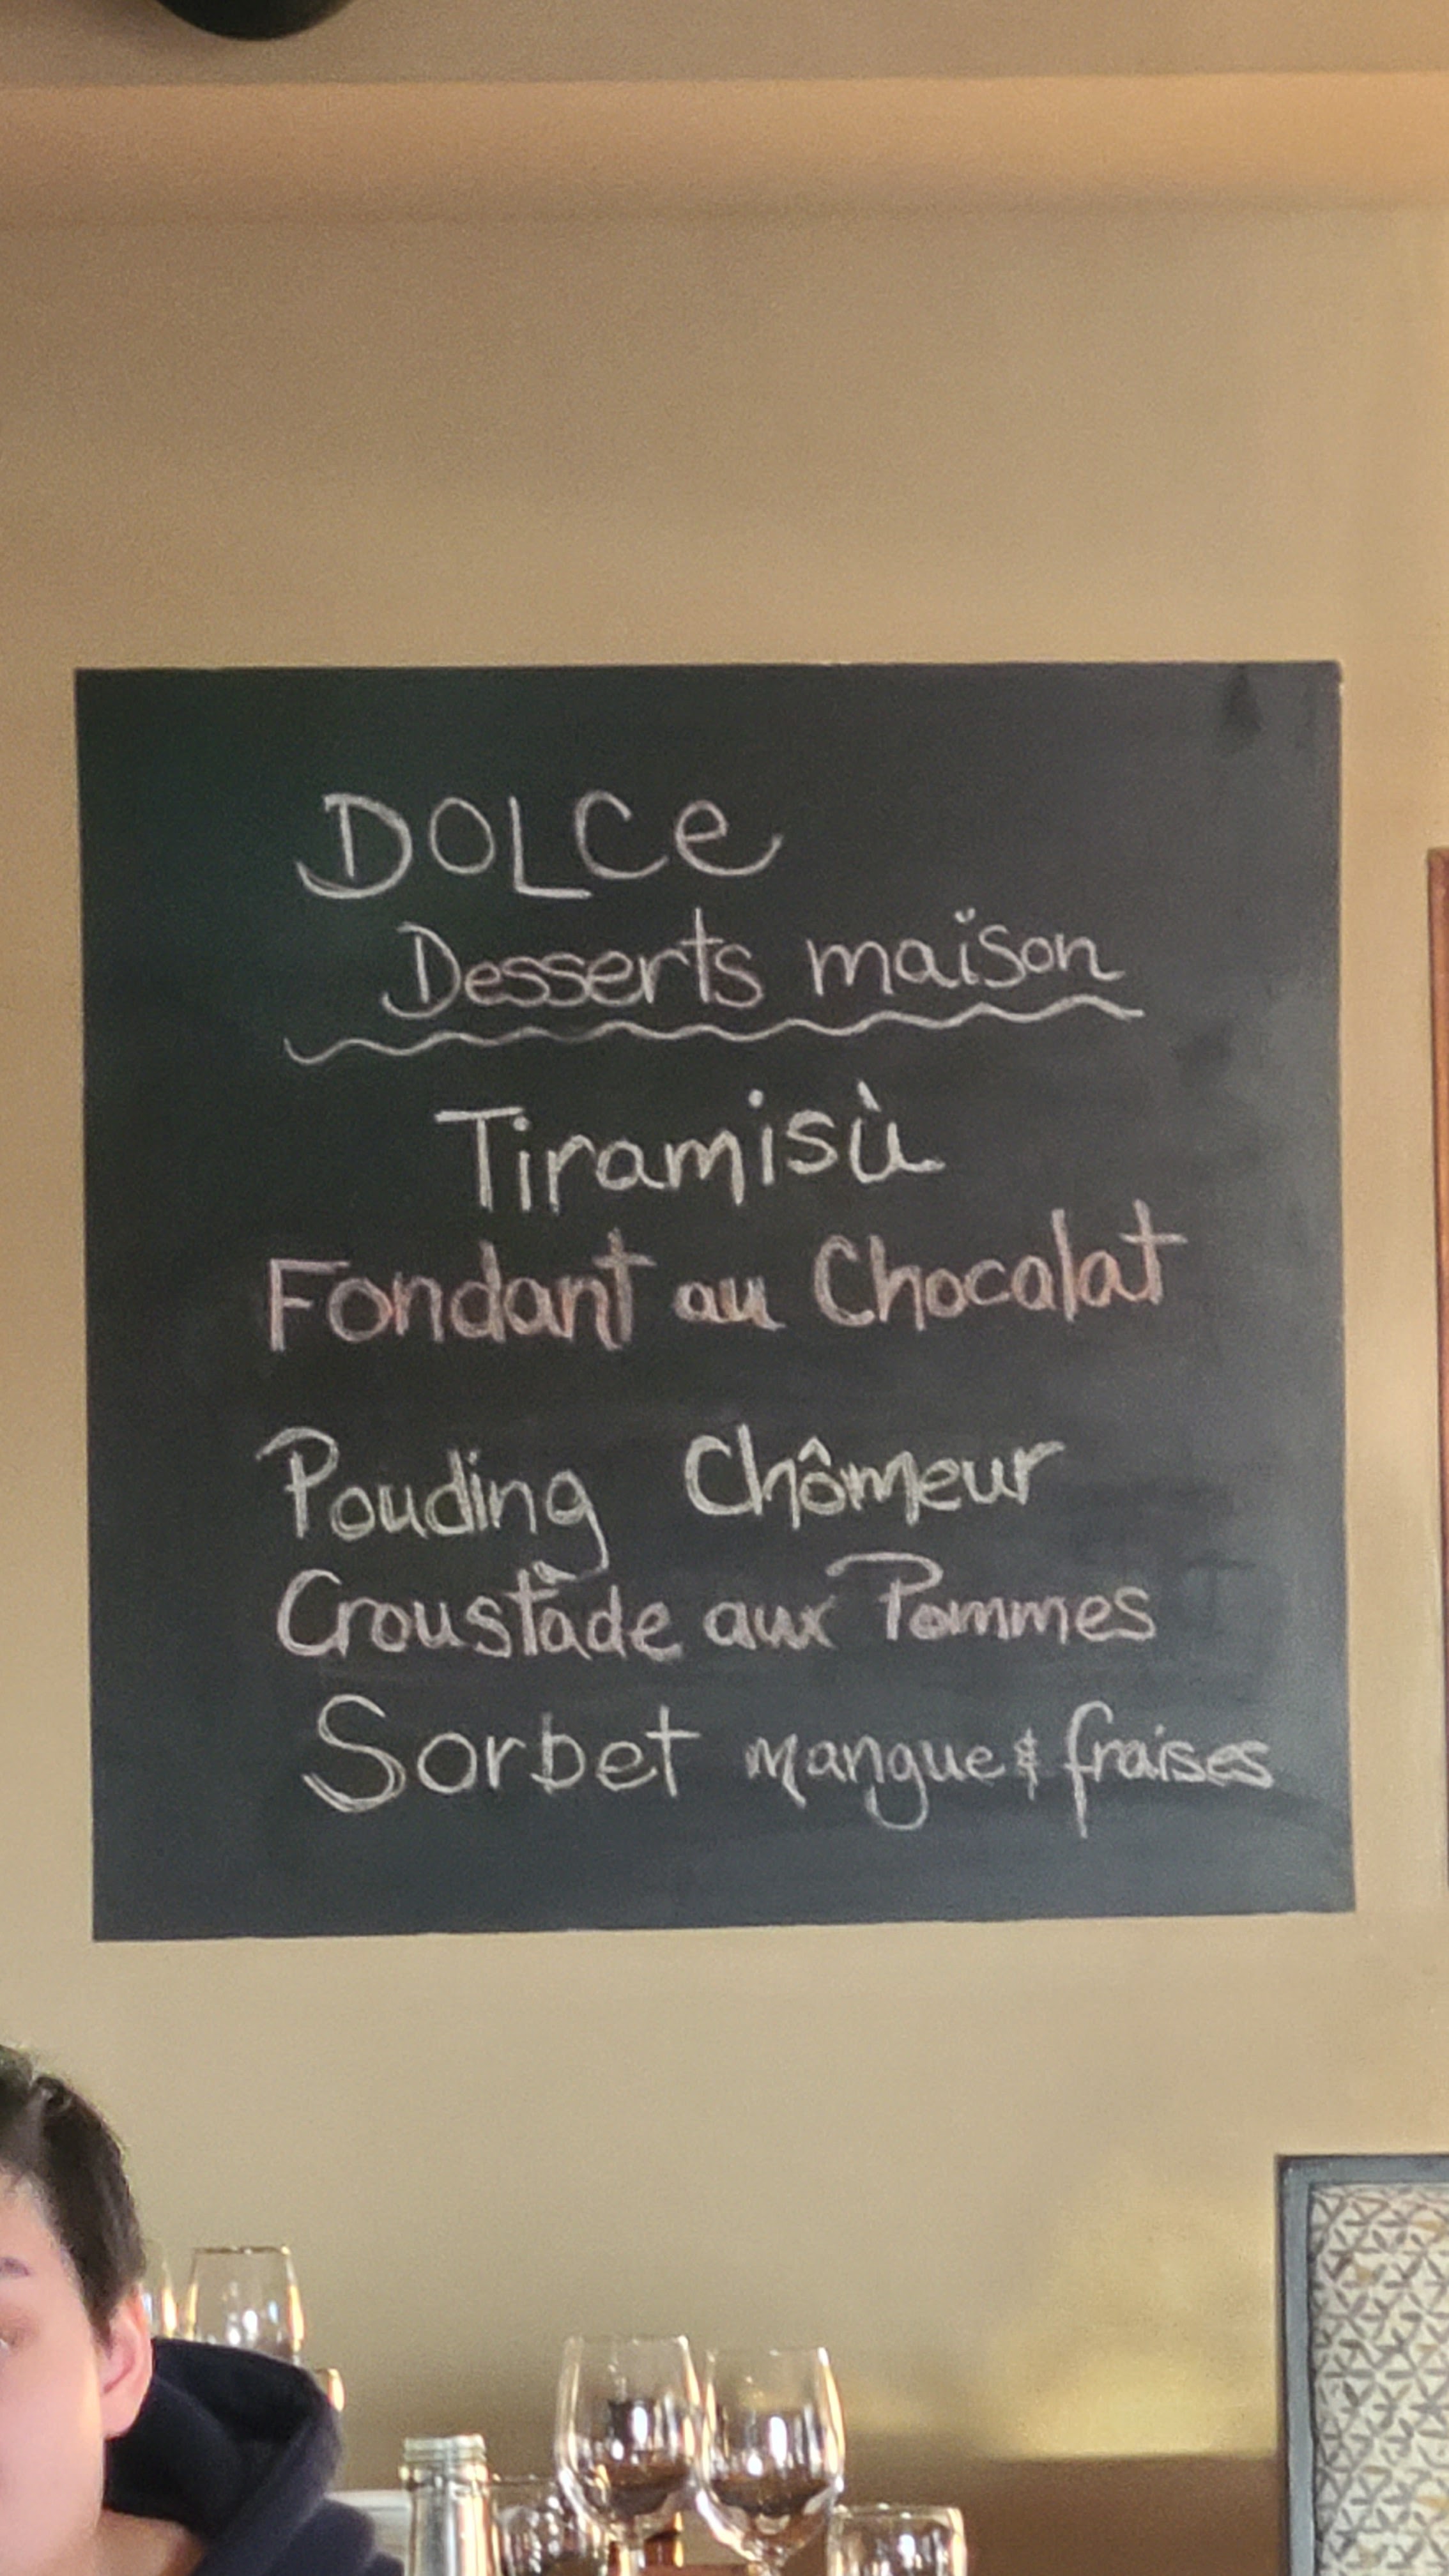 DOLCe
Desserts maison
Tiramisù
Fondant au Chocalat
Pouding Chômeur
Croustade aux Pommes
Sorbet mangue & fraises